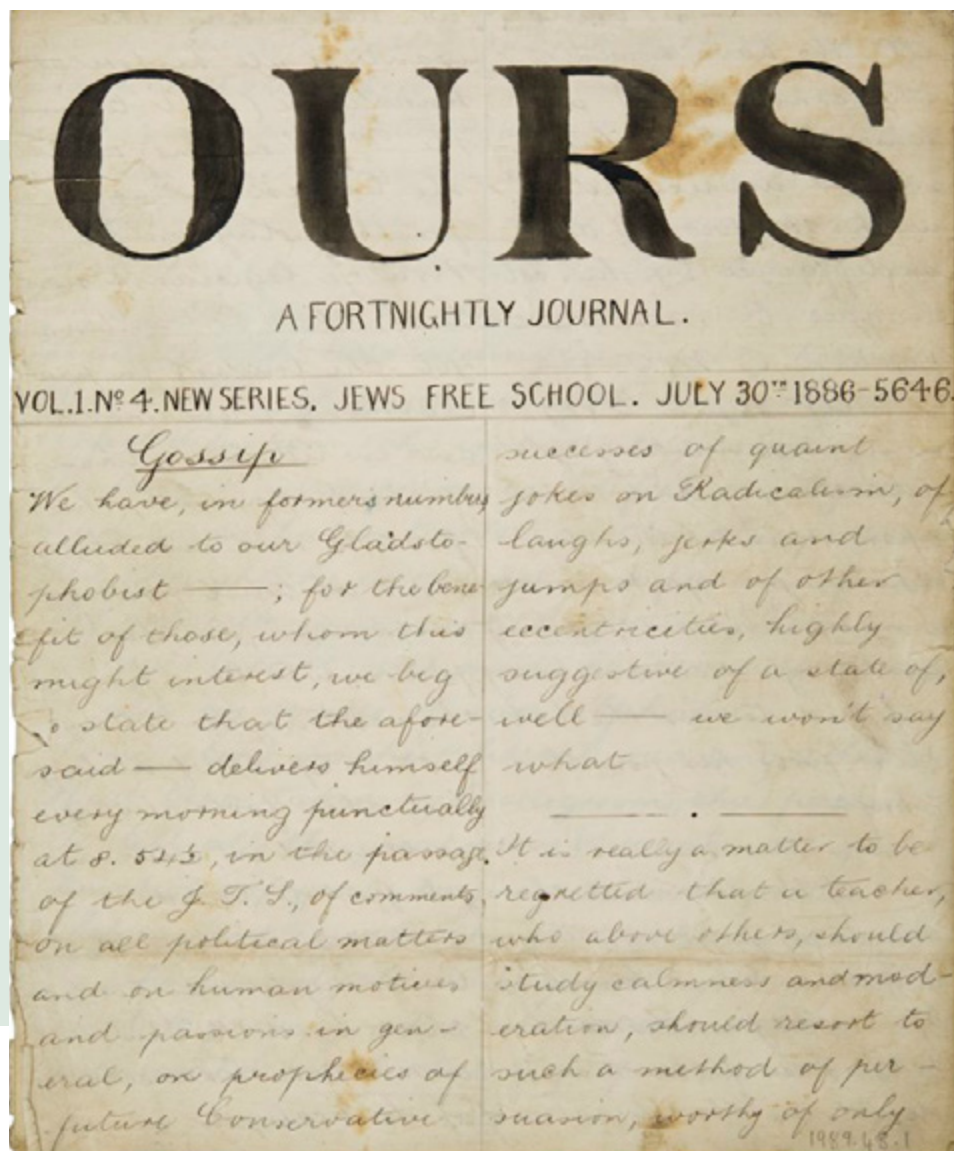 OURS
A FORTNIGHTLY JOURNAL.
VOL.1.No 4. NEW SERIES. JEWS FREE SCHOOL. JULY 30TH 1886-5646.
Gossip
We have, in former numbers
alluded to our Gladsto-
phobist —— ; for the bene-
fit of those, whom this
might interest, we beg
to state that the afore-
said —— delivers himself
every morning punctually
at 8.54½, in the passage
of the J. F. S., of comments
on all political matters
and on human motives
and passions in gen-
eral, on prophecies of
future Conservative
successes of quaint
jokes on Radicalism, of
laughs, jerks and
jumps and of other
eccentricities, highly
suggestive of a state of,
well —— we won't say
what
It is really a matter to be
regretted that a teacher,
who above others, should
study calmness and mod-
eration, should resort to
such a method of per-
suasion, worthy of only
1989.48.1